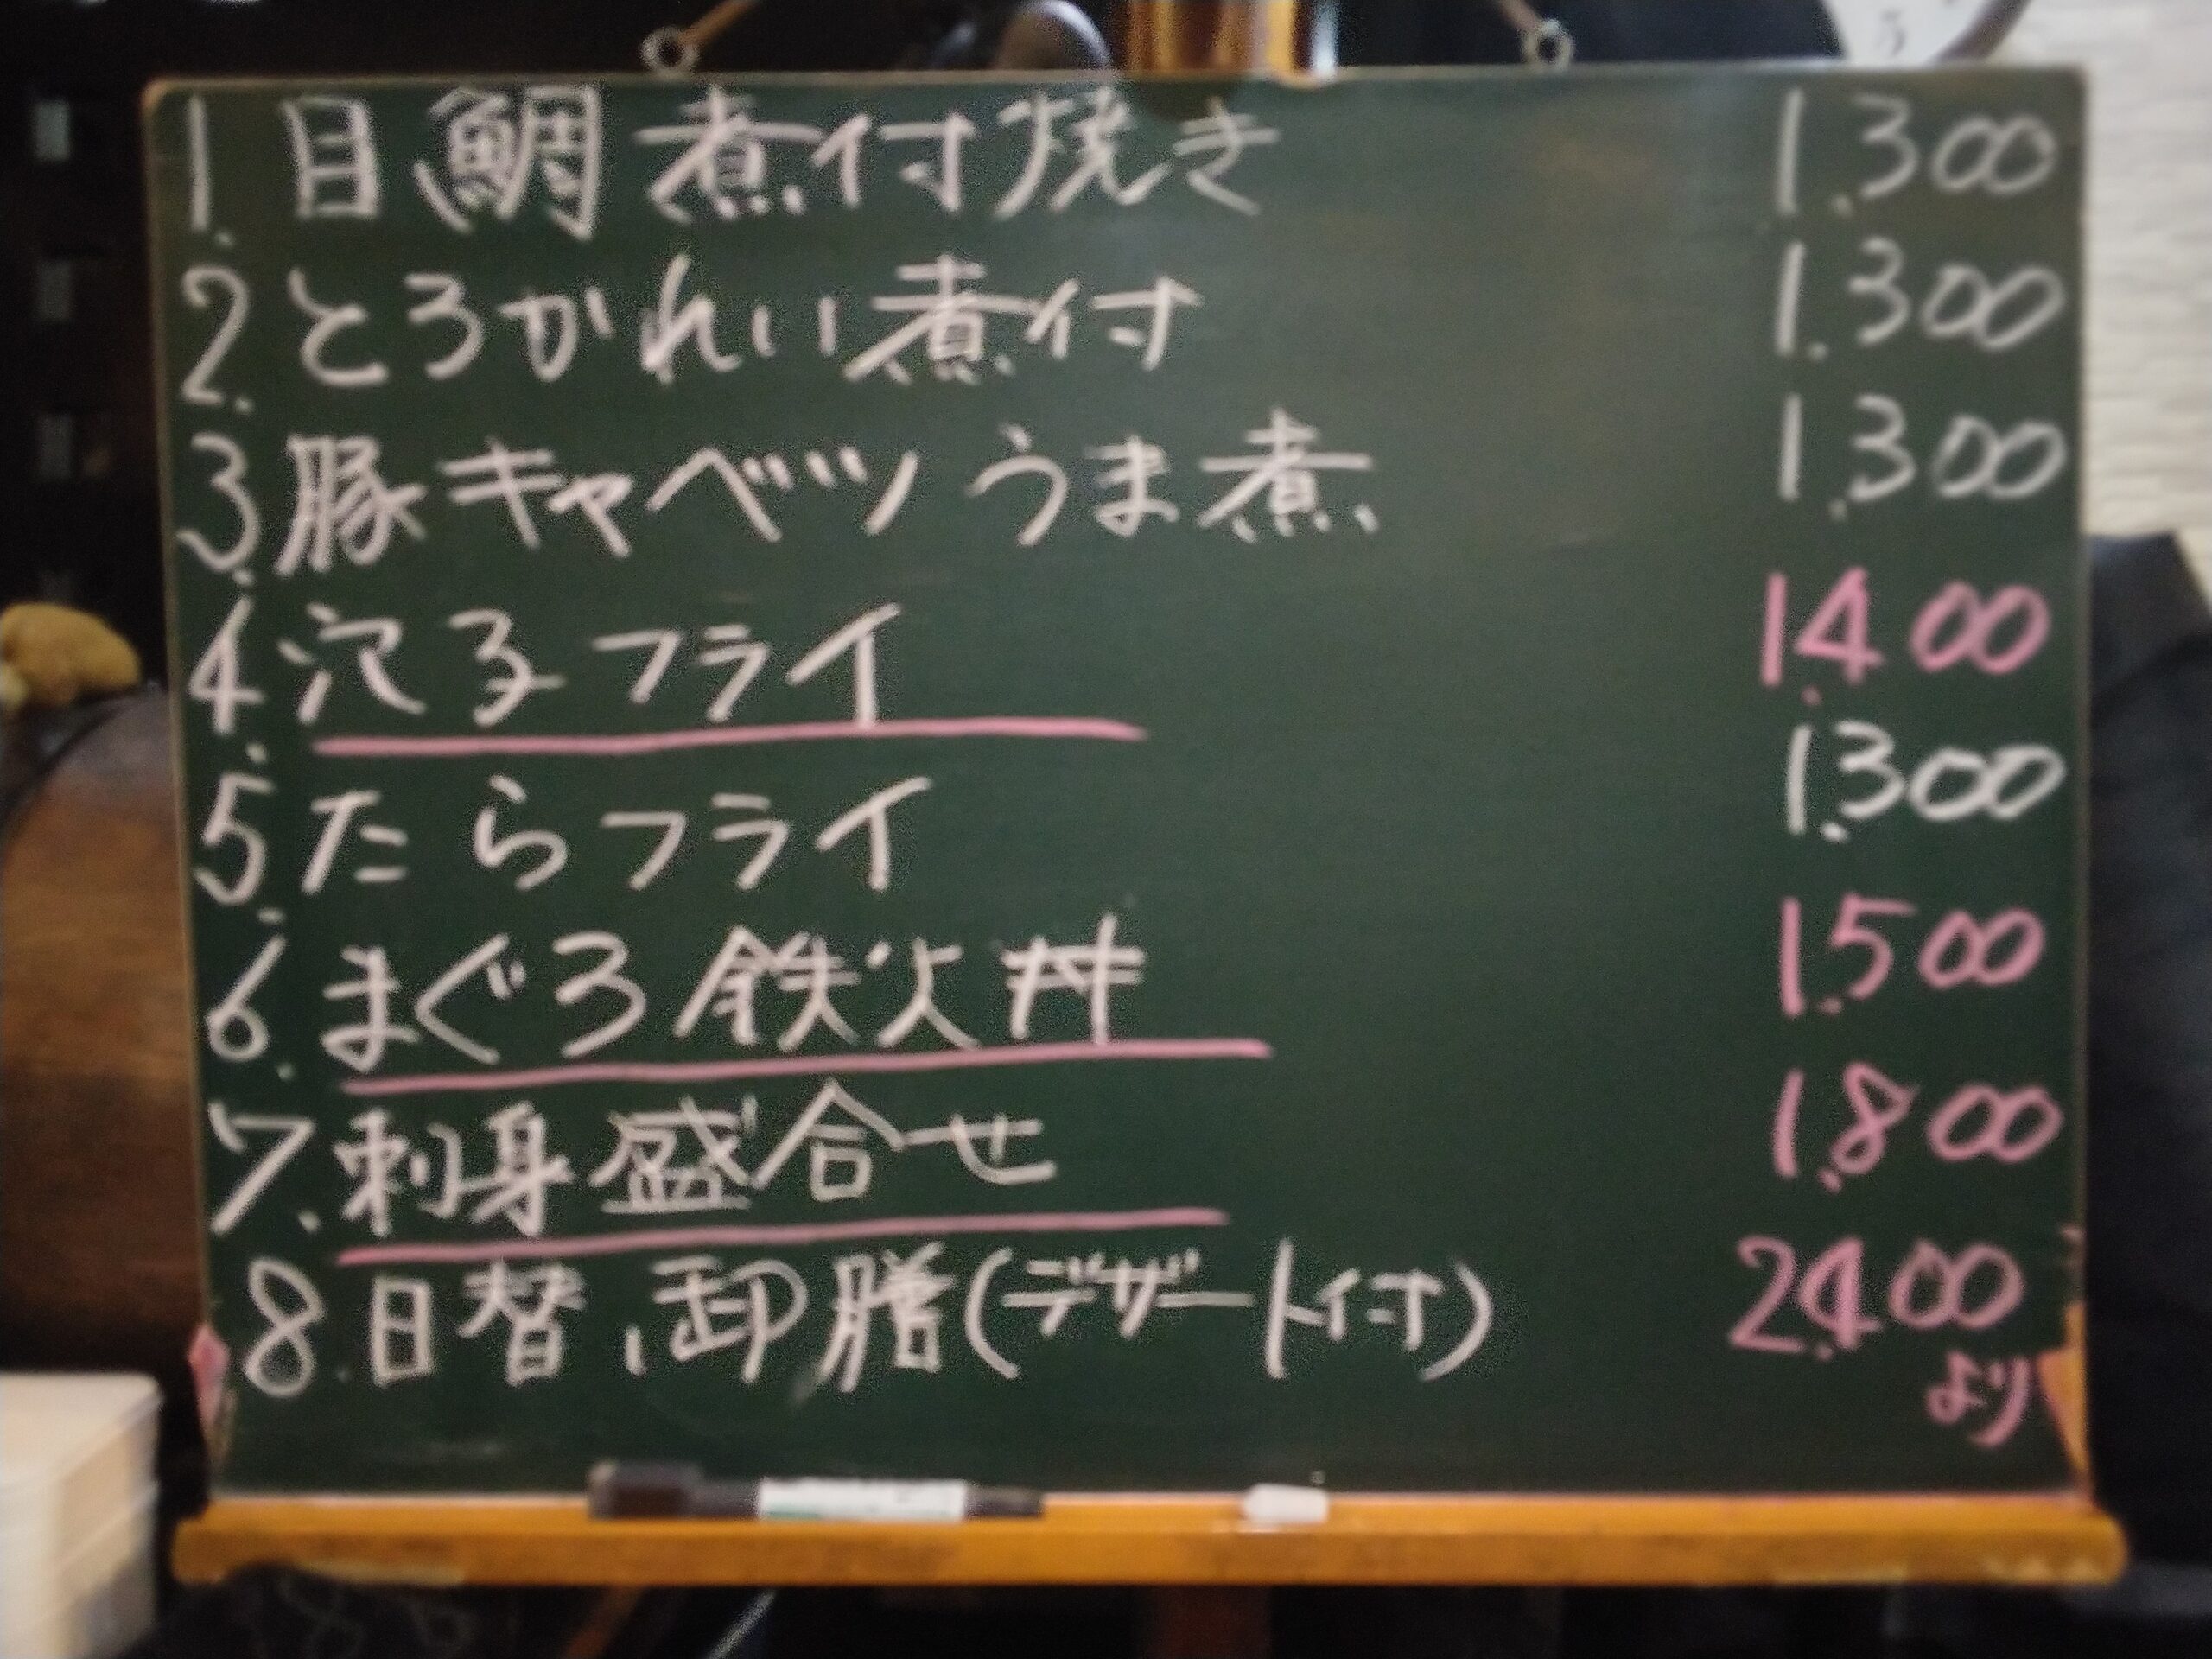 1. 目鯛煮付焼き 1.300
2. とろかれい煮付 1.300
3. 豚キャベツうま煮 1.300
4. 穴子フライ 1.400
5. たらフライ 1.300
6. まぐろ鉄火丼 1.500
7. 刺身盛合せ 1.800
8. 日替、御膳(デザート付) 2.400
より